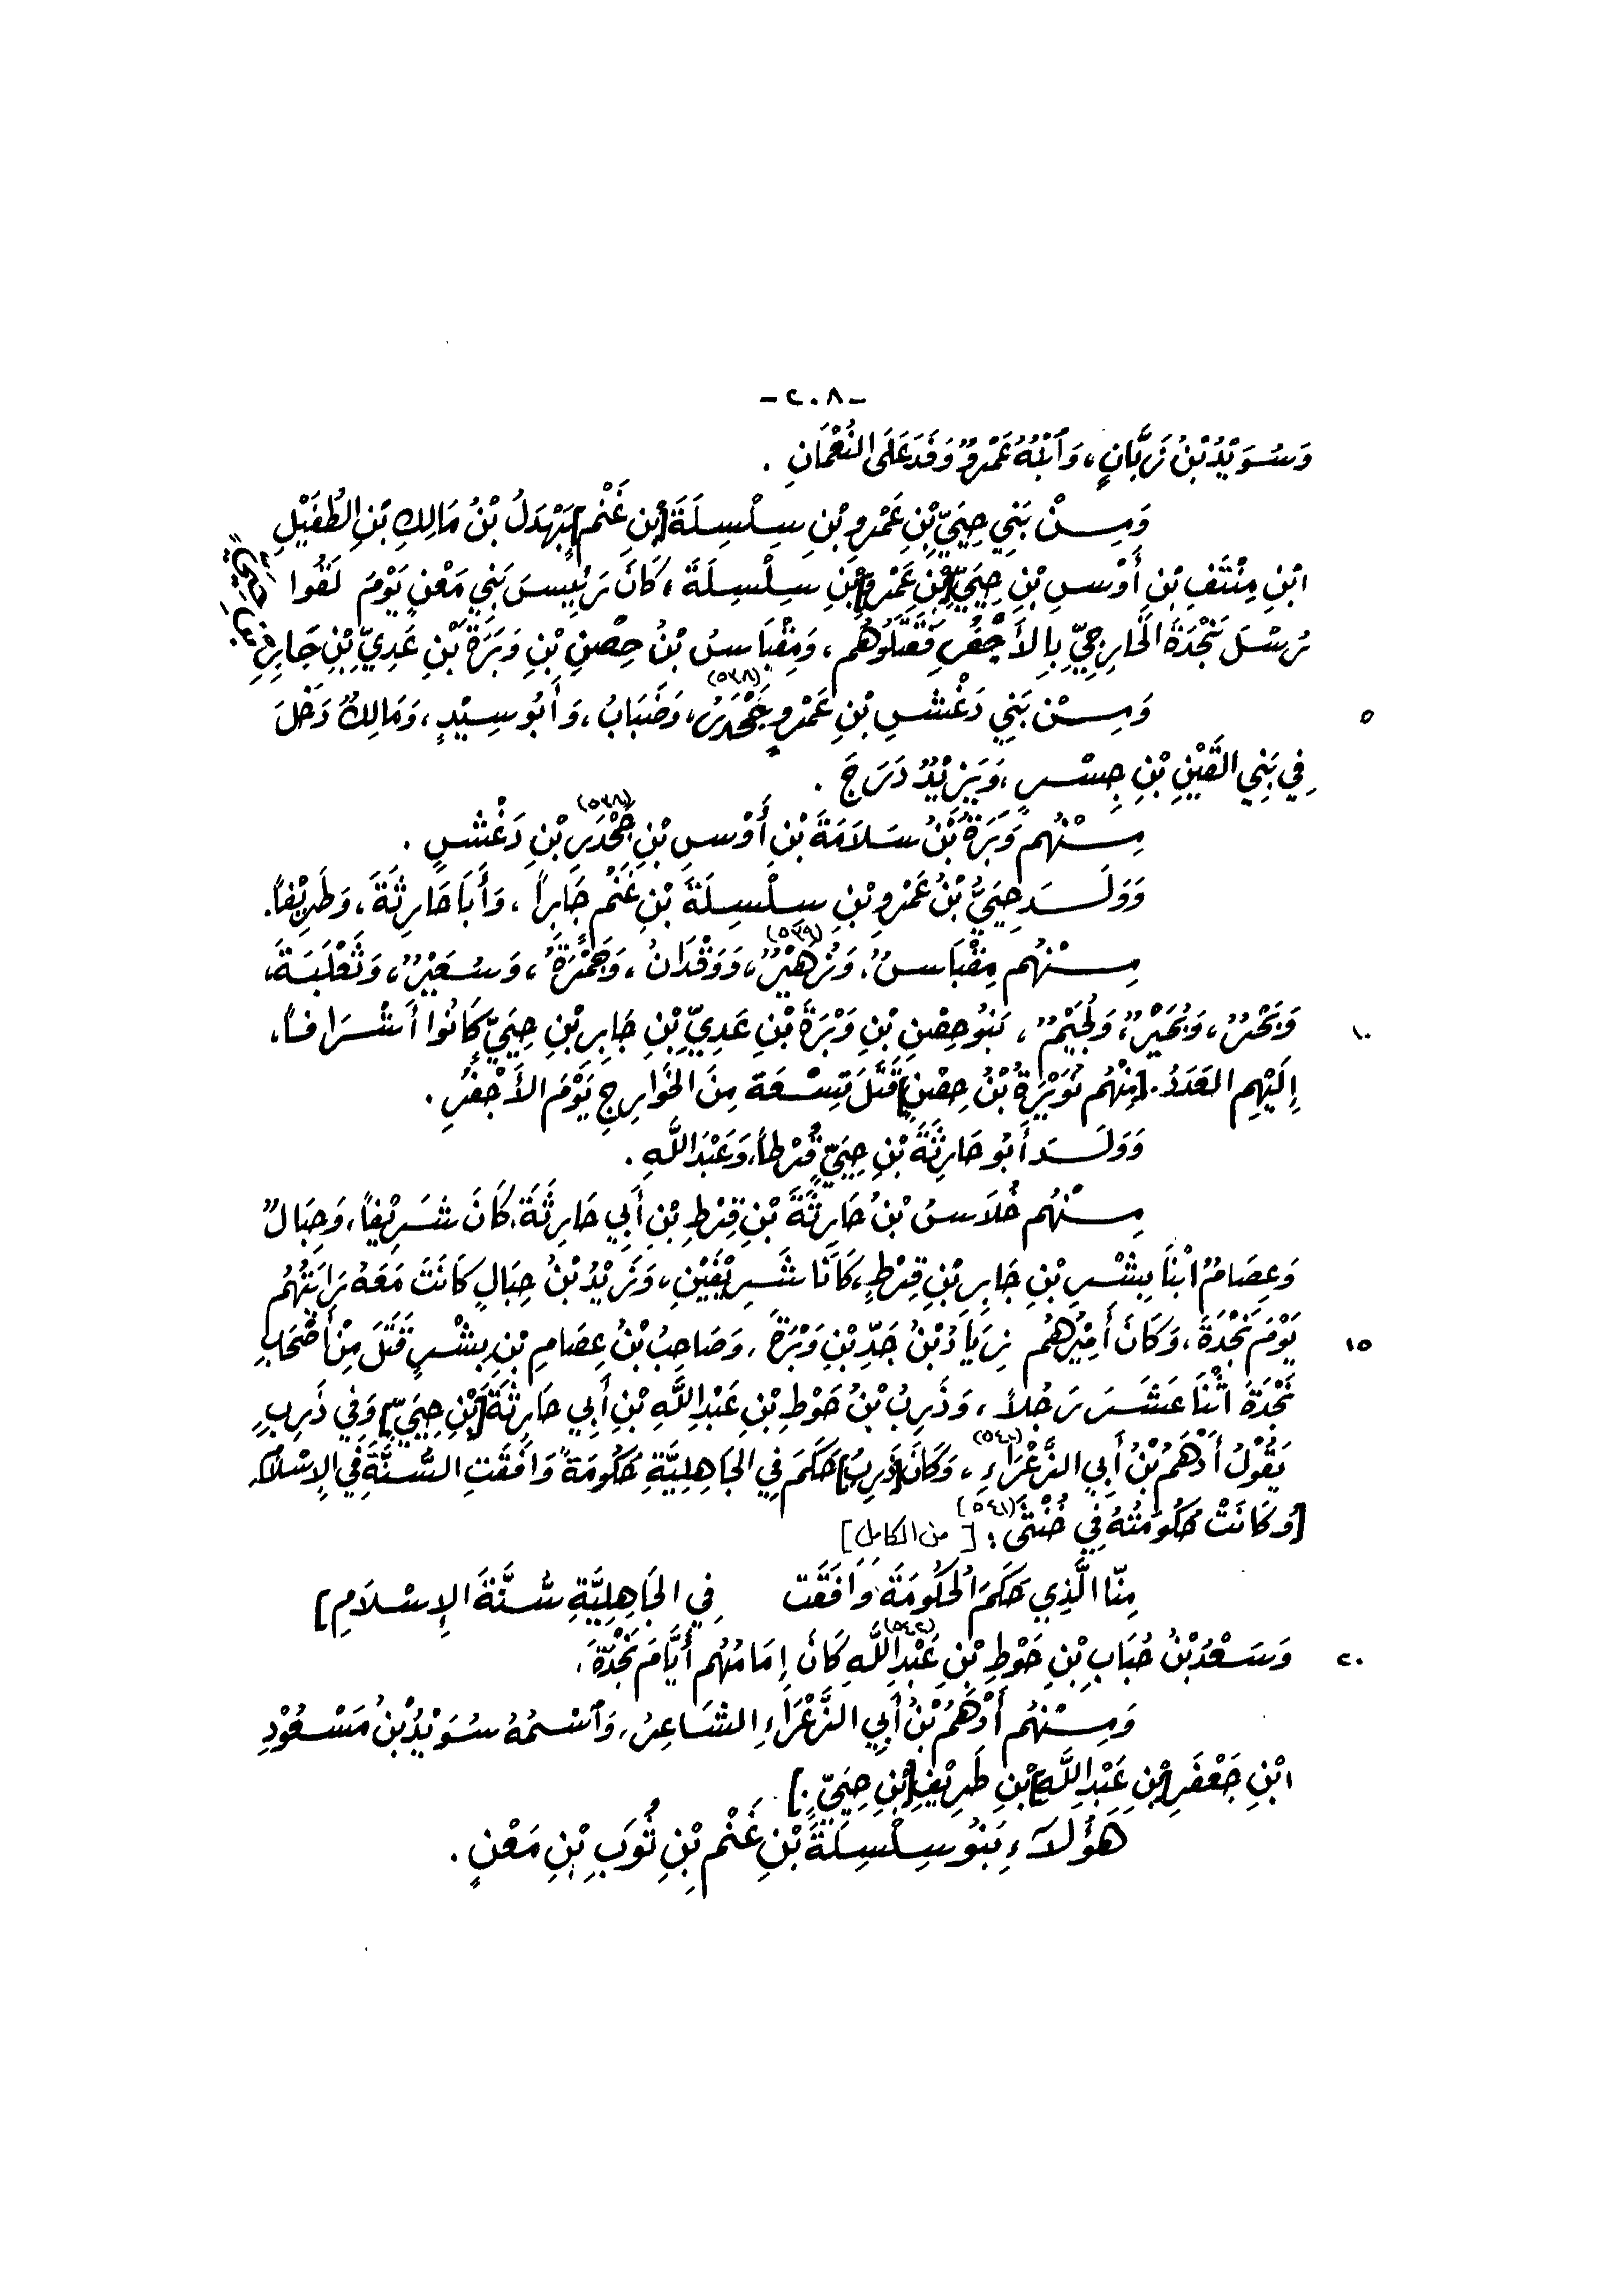 -٢٠٨-
وَسُوَيْدُ بْنُ زَبَّانٍ، وَٱبْنُهُ عَمْرٌو وَفَدَ عَلَى النُّعْمَانِ .
وَمِنْ بَنِي حِيَيِّ بْنِ عَمْرِو بْنِ سِلْسِلَةَ [بْنِ غَنْمٍ] بَهْدَلُ بْنُ مَالِكِ بْنِ الطُّفَيْلِ
ابْنِ مِنْتَفِ بْنِ أَوْسِ بْنِ حِيَيِّ [بْنِ عَمْرِو] بْنِ سِلْسِلَةَ، كَانَ رَئِيسَ بَنِي مَعْنٍ يَوْمَ لَقُوا
رُسْلَ نَجْدَةَ الخَارِجِيِّ بِالأَجْفُرِ فَقَتَلُوهُم، وَمِقْبَاسُ بْنُ حِصْنِ بْنِ وَبَرَةَ بْنِ عَدِيِّ بْنِ جَابِرِ بْنِ حِيَيٍّ
٥ وَمِنْ بَنِي دَغْشِ بْنِ عَمْرٍو جَحْدَرٌ، (٥٣٨) وَضَبَابُ، وَأَبُو سِيْدٍ، وَمَالِكٌ دَخَلَ
فِي بَنِي القَيْنِ بْنِ جِسْرٍ، وَيَزِيْدُ دَرَجَ .
مِنْهُم وَبَرَةُ بْنُ سَلاَمَةَ بْنِ أَوْسِ بْنِ جَحْدَرِ (٥٣٨) بْنِ دَغْشٍ .
وَوَلَدَ حِيَيُّ بْنُ عَمْرِو بْنِ سِلْسِلَةَ بْنِ غَنْمٍ جَابِراً، وَأَبَا حَارِثَةَ، وَطَرِيْفاً.
مِنْهُم مِقْبَاسٌ، وَزُهَيْرٌ، (٥٣٩) وَوَقْدَانُ، وَحَمْزَةُ، وَسُعَيْرٌ، وَثَعْلَبَةُ،
١٠ وَبَحْرٌ، وَبُحَيْرٌ، وَلُجَيْمٌ، بَنُو حِصْنِ بْنِ وَبْرَةَ بْنِ عَدِيِّ بْنِ جَابِرِ بْنِ حِيَيٍّ كَانُوا أَشْرَافاً،
إِلَيْهِمِ العَدَدُ. [مِنْهُم نُوَيْرَةُ بْنُ حِصْنٍ] قَتَلَ تِسْعَةً مِنَ الخَوَارِجِ يَوْمَ الأَجْفُرِ .
وَوَلَدَ أَبُو حَارِثَةَ بْنِ حِيَيٍّ قُرْطاً، وَعَبْدَ اللَّهِ .
مِنْهُم خُلاَسُ بْنُ حَارِثَةَ بْنِ قِرْطِ بْنِ أَبِي حَارِثَةَ، كَانَ شَرِيْفاً، وَحِبَالٌ
وَعِصَامٌ ابْنَا بِشْرِ بْنِ جَابِرِ بْنِ قِرْطٍ، كَانَا شَرِيْفَيْنِ، وَزَيْدُ بْنُ حِبَالٍ كَانَتْ مَعَهُ رَايَتُهُم
١٥ يَوْمَ نَجْدَةَ، وَكَانَ أَمِيْرَهُم زِيَادُ بْنُ جَدِّ بْنِ وَبْرَةَ، وَصَاحِبُ بْنُ عِصَامِ بْنِ بِشْرٍ قَتَلَ مِنْ أَصْحَابِ
نَجْدَةَ اثْنَا عَشَرَ رَجُلاً، وَذَرِبُ بْنُ حَوْطِ بْنِ عَبْدِ اللَّهِ بْنِ أَبِي حَارِثَةَ [بْنِ حِيَيٍّ] وَفِي ذَرِبٍ
يَقُوْلُ أَدْهَمُ بْنُ أَبِي الزَّعْرَاءِ، (٥٤٠) وَكَانَ [ذَرِبٌ] حَكَمَ فِي الجَاهِلِيَّةِ حُكُومَةً وَافَقَتِ السُّنَّةَ فِي الإِسْلاَمِ
[وَكَانَتْ حُكُوْمَتُهُ فِي خُنْثَى؛ (٥٤١) [من الكامل]
مِنّا الَّذِي حَكَمَ الحُكُومَةَ وَافَقَتْ فِي الجَاهِلِيَّةِ سُنَّةَ الإِسْلاَمِ]
٢٠ وَسَعْدُ بْنُ حُبَابِ بْنِ حَوْطِ بْنِ عَبْدِ اللَّهِ (٥٤٢) كَانَ إِمَامُهُم أَيَّامَ نَجْدَةَ.
وَمِنْهُم أَدْهَمُ بْنُ أَبِي الزَّعْرَاءِ الشَاعِرُ، وَٱسْمُهُ سُوَيْدُ بْنُ مَسْعُوْدِ
ابْنِ جَعْفَرِ [بْنِ عَبْدِ اللَّهِ] بْنِ طَرِيْفِ [بْنِ حِيَيٍّ.]
هَؤُلاَءِ بَنُو سِلْسِلَةَ بْنِ غَنْمِ بْنِ ثُوَبِ بْنِ مَعْنٍ .